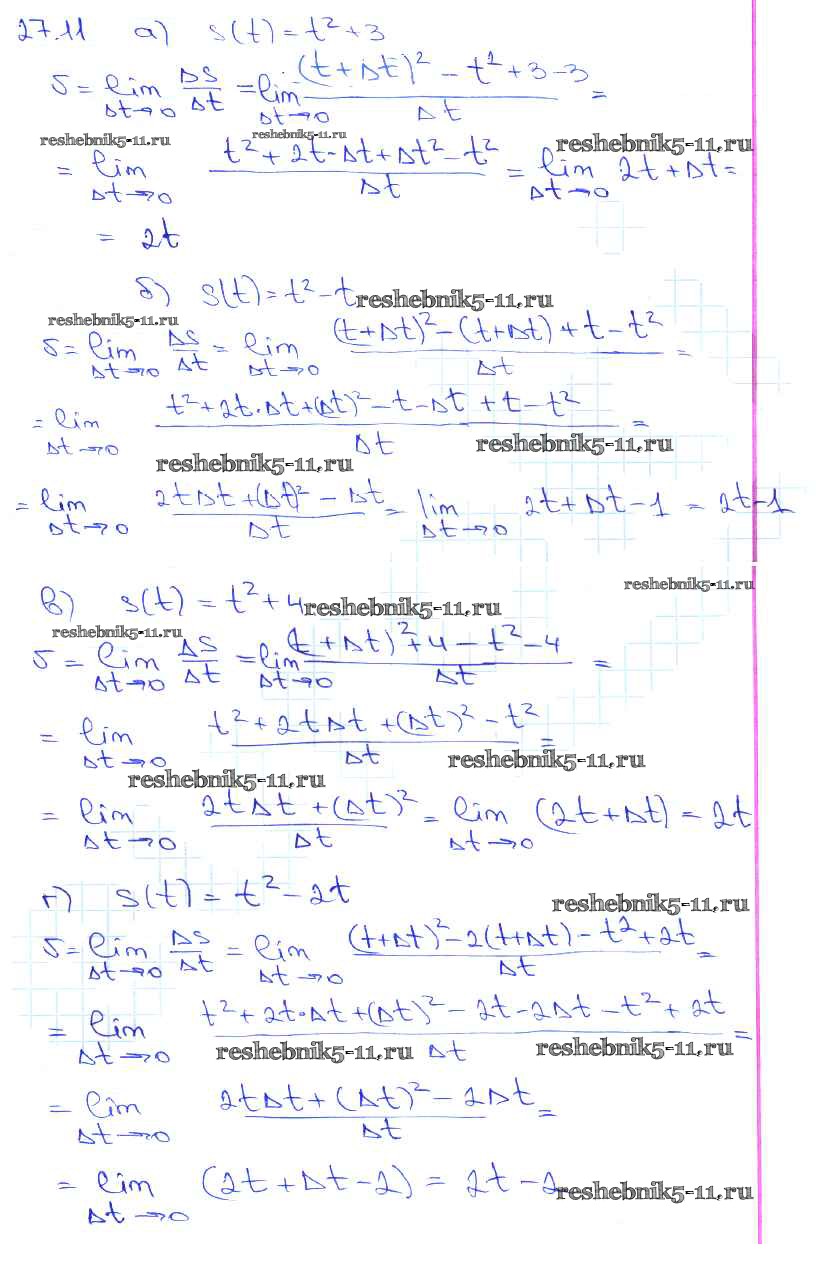 27.11 а) s(t) = t² + 3
v = lim Δt→0 ΔS/Δt = lim Δt→0 ((t + Δt)² - t² + 3 - 3)/Δt =
reshebnik5-11.ru reshebnik5-11.ru reshebnik5-11.ru
= lim Δt→0 (t² + 2t·Δt + Δt² - t²)/Δt = lim Δt→0 2t + Δt =
= 2t
б) s(t) = t² - t reshebnik5-11.ru
reshebnik5-11.ru
v = lim Δt→0 ΔS/Δt = lim Δt→0 ((t + Δt)² - (t + Δt) + t - t²)/Δt =
= lim Δt→0 (t² + 2t·Δt + (Δt)² - t - Δt + t - t²)/Δt =
reshebnik5-11.ru reshebnik5-11.ru
= lim Δt→0 (2tΔt + (Δt)² - Δt)/Δt = lim Δt→0 2t + Δt - 1 = 2t - 1
reshebnik5-11.ru
в) s(t) = t² + 4 reshebnik5-11.ru
reshebnik5-11.ru
v = lim Δt→0 ΔS/Δt = lim Δt→0 ((t + Δt)² + 4 - t² - 4)/Δt =
= lim Δt→0 (t² + 2tΔt + (Δt)² - t²)/Δt =
reshebnik5-11.ru reshebnik5-11.ru
= lim Δt→0 (2tΔt + (Δt)²)/Δt = lim Δt→0 (2t + Δt) = 2t
г) s(t) = t² - 2t reshebnik5-11.ru
v = lim Δt→0 ΔS/Δt = lim Δt→0 ((t + Δt)² - 2(t + Δt) - t² + 2t)/Δt =
= lim Δt→0 (t² + 2t·Δt + (Δt)² - 2t - 2Δt - t² + 2t)/Δt =
reshebnik5-11.ru reshebnik5-11.ru
= lim Δt→0 (2tΔt + (Δt)² - 2Δt)/Δt =
= lim Δt→0 (2t + Δt - 2) = 2t - 2 reshebnik5-11.ru